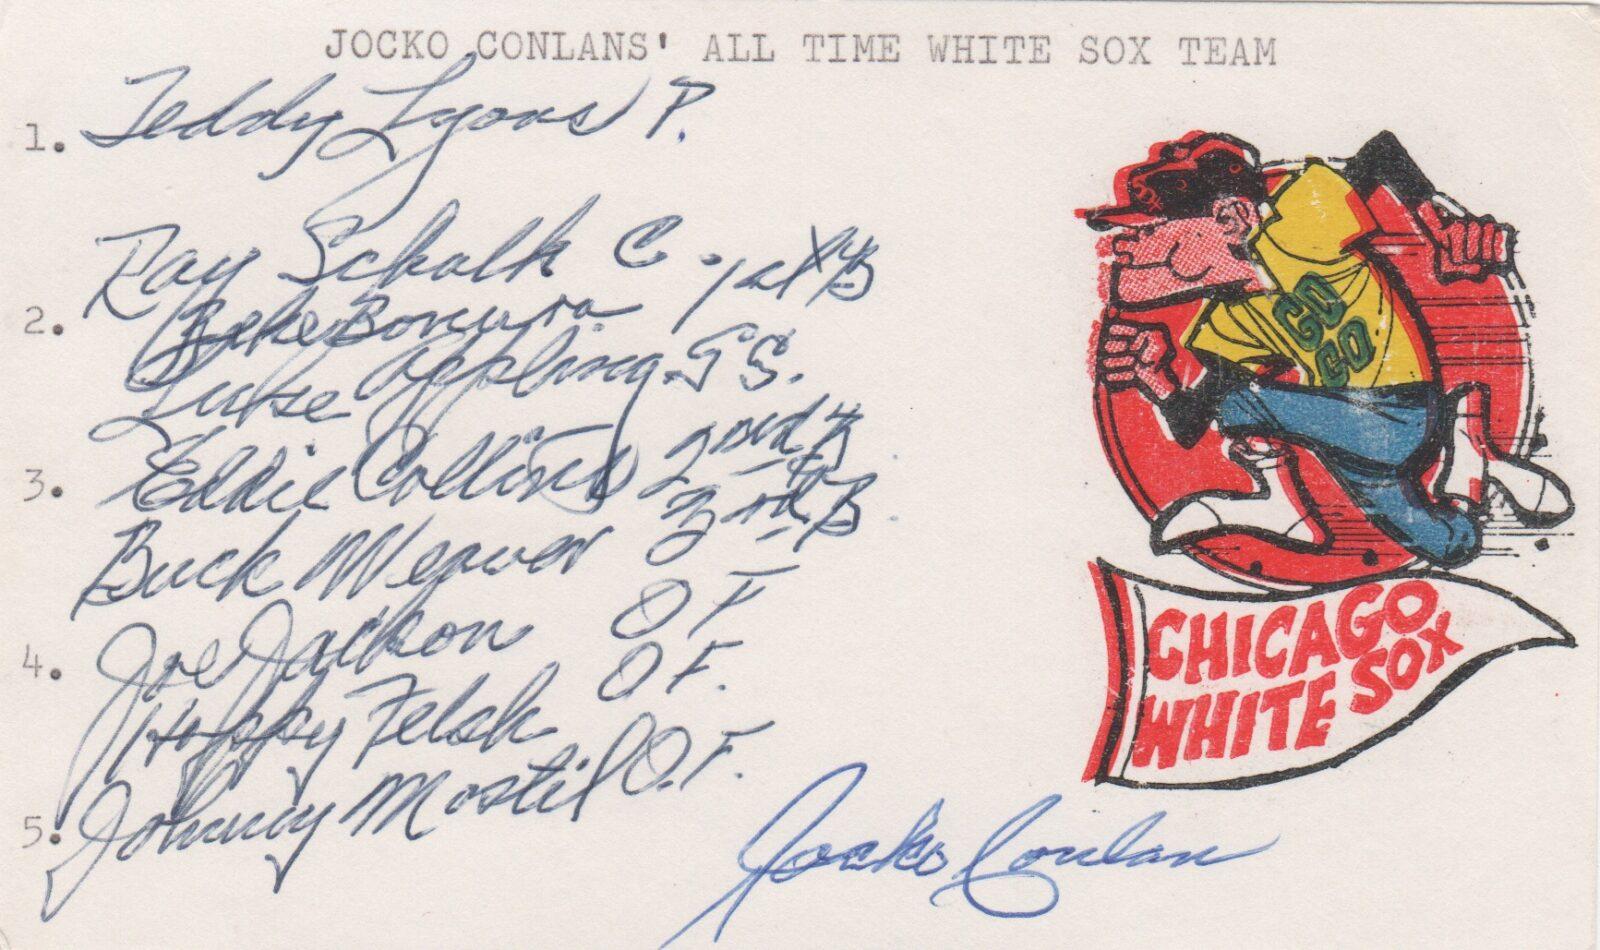 JOCKO CONLANS' ALL TIME WHITE SOX TEAM
1. Teddy Lyons P.
Ray Schalk C.
2. Zeke Bonura 1st B
Luke Appling S S.
3. Eddie Collins 2nd B
Buck Weaver 3rd B
4. Joe Jackson O F
Happy Felsh O F.
5. Johnny Mostil O. F.
Jocko Conlan
SOX
GO
GO
CHICAGO
WHITE SOX